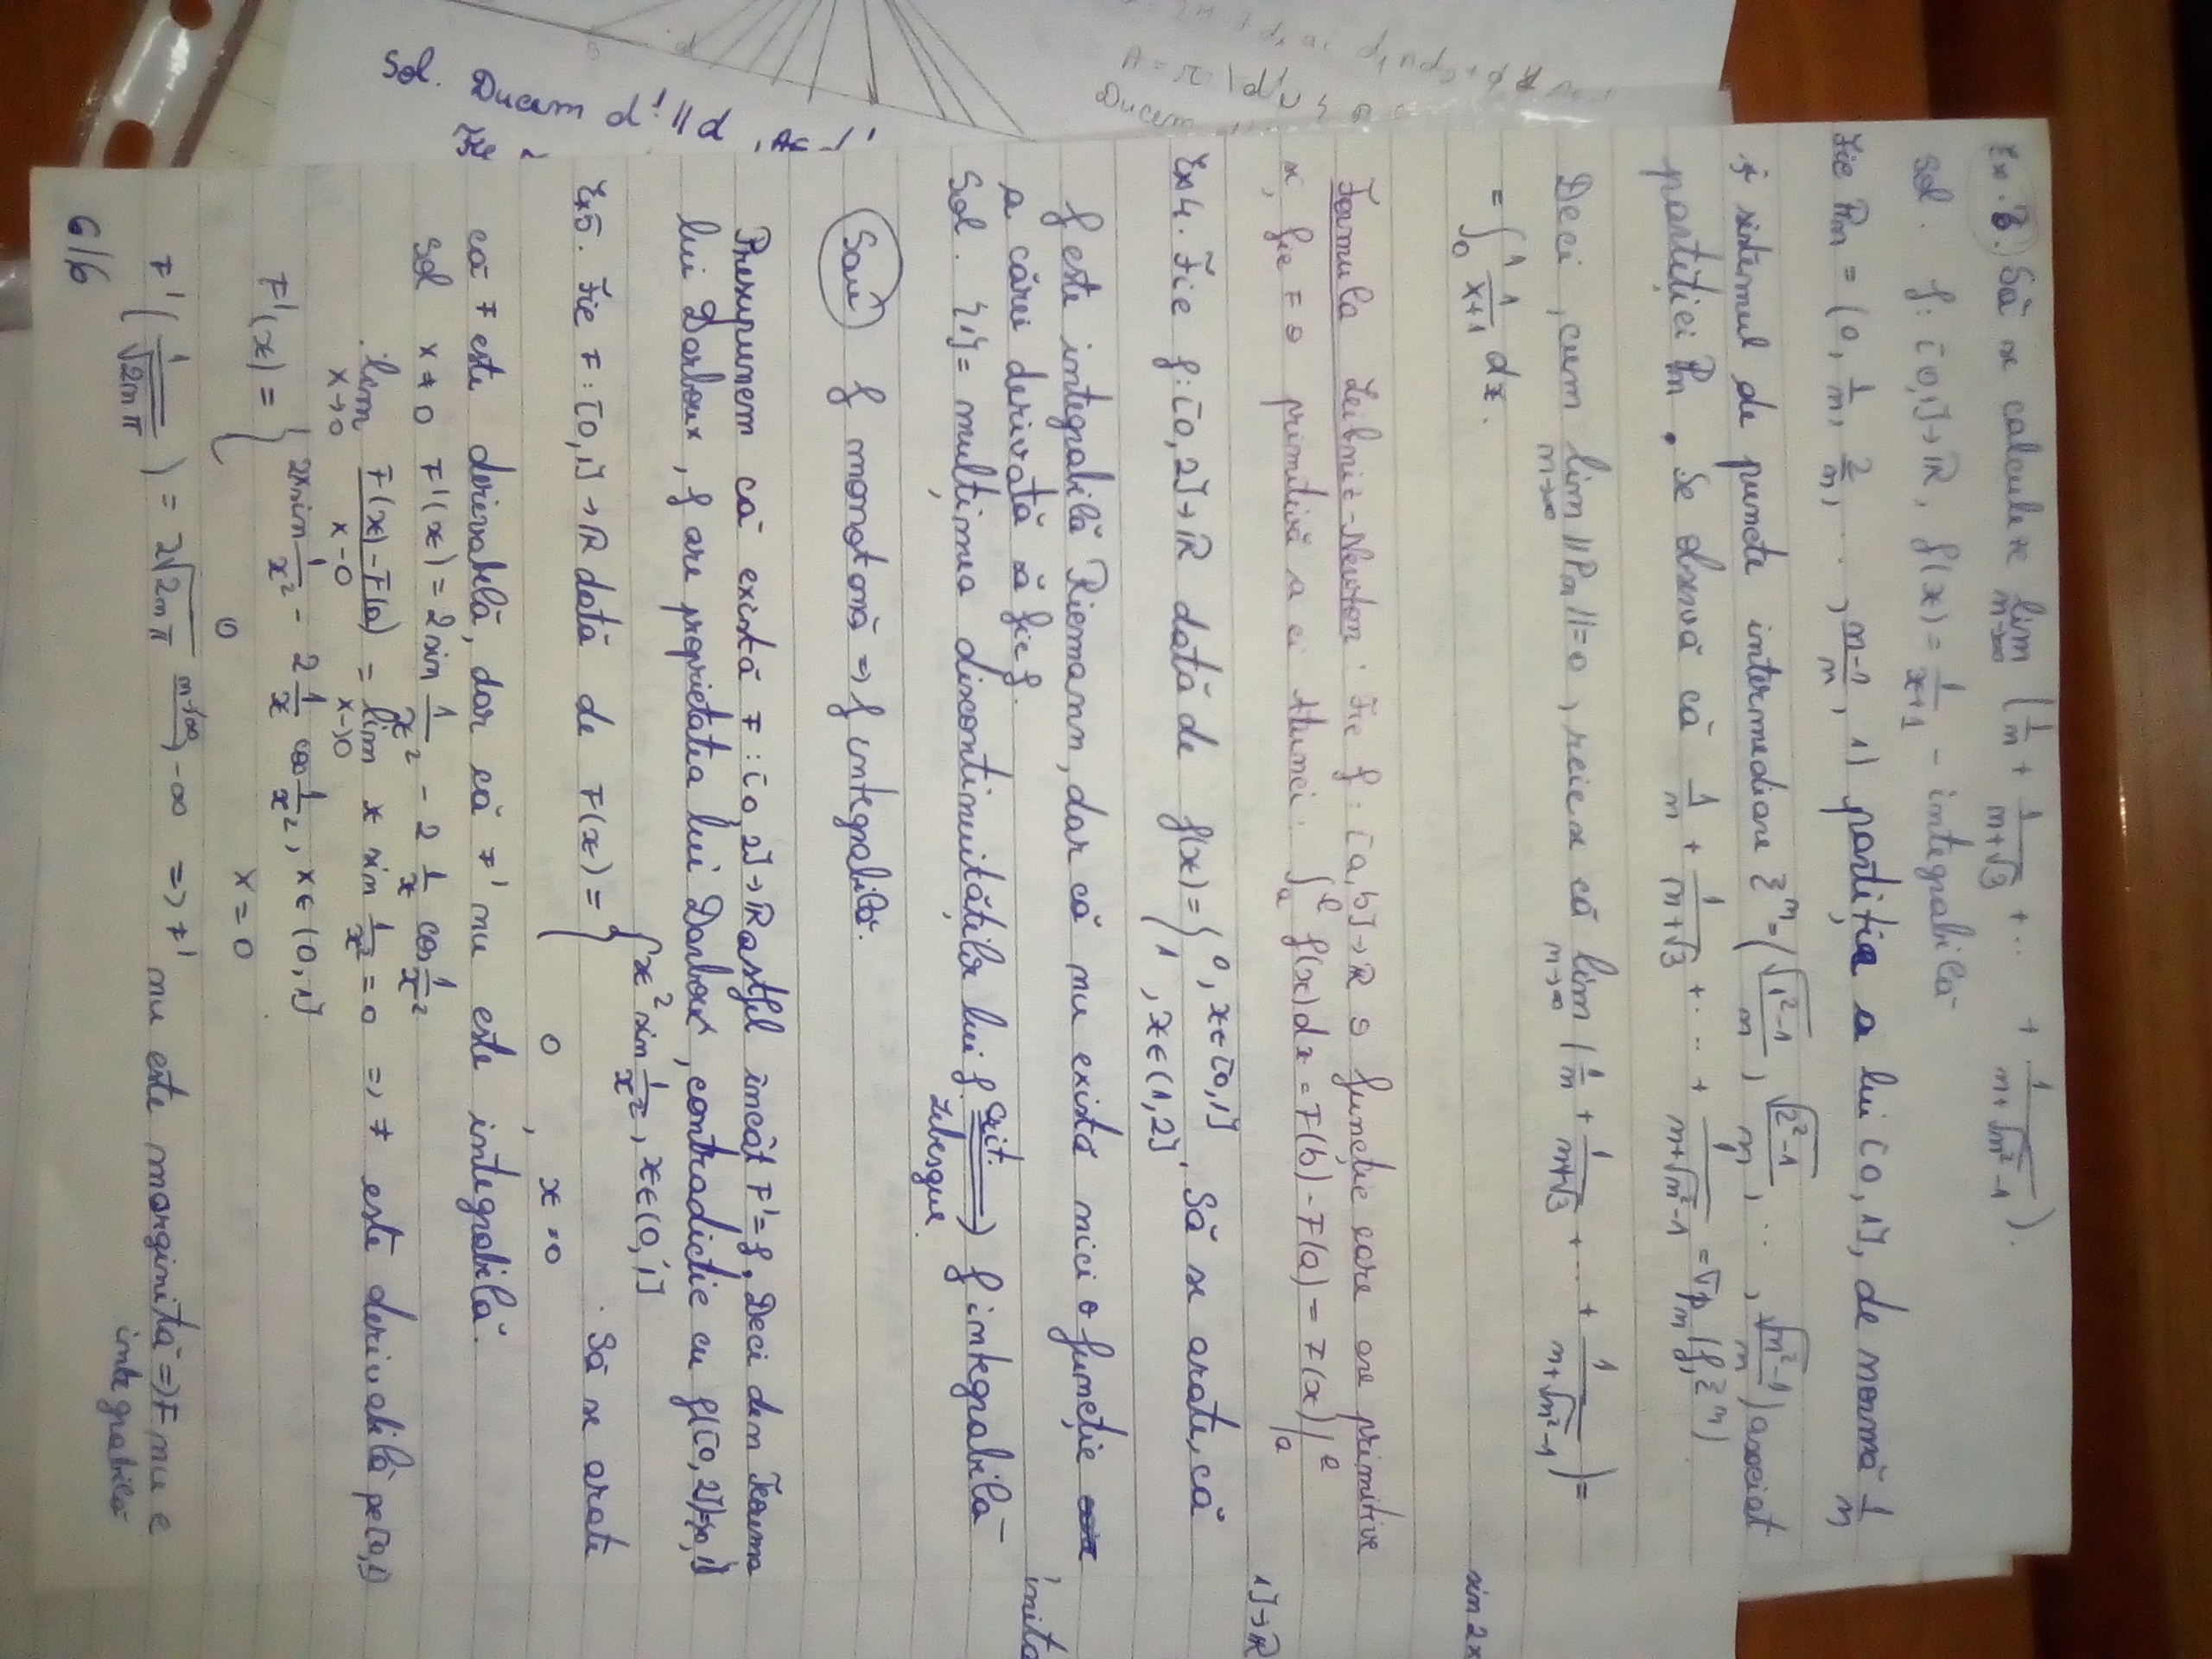 Ex. 3. Să se calculeze lim n→∞ (1/n + 1/(n+√3) + ... + 1/(n+√(n²-1))).
Sol. f: [0,1]→R, f(x) = 1/(x+1) - integrabilă
Fie Pn = (0, 1/n, 2/n, ..., (n-1)/n, 1) partiția a lui [0,1], de normă 1/n
și sistemul de puncte intermediare ξⁿ = (√(1²-1)/n, √(2²-1)/n, ..., √(n²-1)/n) asociat
partiției Pn. Se observă că 1/n + 1/(n+√3) + ... + 1/(n+√(n²-1)) = σPn(f, ξⁿ).
Deci, cum lim n→∞ ||Pn|| = 0, reiese că lim n→∞ (1/n + 1/(n+√3) + ... + 1/(n+√(n²-1))) =
= ∫₀¹ 1/(x+1) dx.
Formula Leibniz-Newton: Fie f: [a,b]→R o funcție care are primitive
și fie F o primitivă a ei. Atunci: ∫ₐᵇ f(x)dx = F(b) - F(a) = F(x)|ₐᵇ
Ex 4. Fie f: [0,2]→R dată de f(x) = { 0, x∈[0,1]
1, x∈(1,2]. Să se arate, că
f este integrabilă Riemann, dar că nu există nici o funcție
a cărei derivată să fie f.
Sol. {1} = mulțimea discontinuităților lui f ⇒ (crit. Lebesgue) f integrabilă
Sau f monotonă ⇒ f integrabilă.
Presupunem că există F: [0,2]→R astfel încât F' = f. Deci din Teorema
lui Darboux, f are proprietatea lui Darboux, contradicție cu f([0,2])={0,1}
Ex 5. Fie F: [0,1]→R dată de F(x) = { x² sin 1/x², x∈(0,1]
0, x=0. Să se arate
că F este derivabilă, dar că F' nu este integrabilă.
Sol x≠0 F'(x) = 2 sin 1/x² - 2 1/x cos 1/x²
lim x→0 (F(x)-F(0))/(x-0) = lim x→0 x sin 1/x² = 0 ⇒ F este derivabilă pe [0,1]
F'(x) = { 2x sin 1/x² - 2 1/x cos 1/x², x∈(0,1].
0 x=0
F'(1/√(2nπ)) = 2√(2nπ) n→∞→ -∞ ⇒ F' nu este mărginită ⇒ F nu e
integrabilă
6/6
Sol. Ducem d' || d
Ducem
sin 2x
1]→R